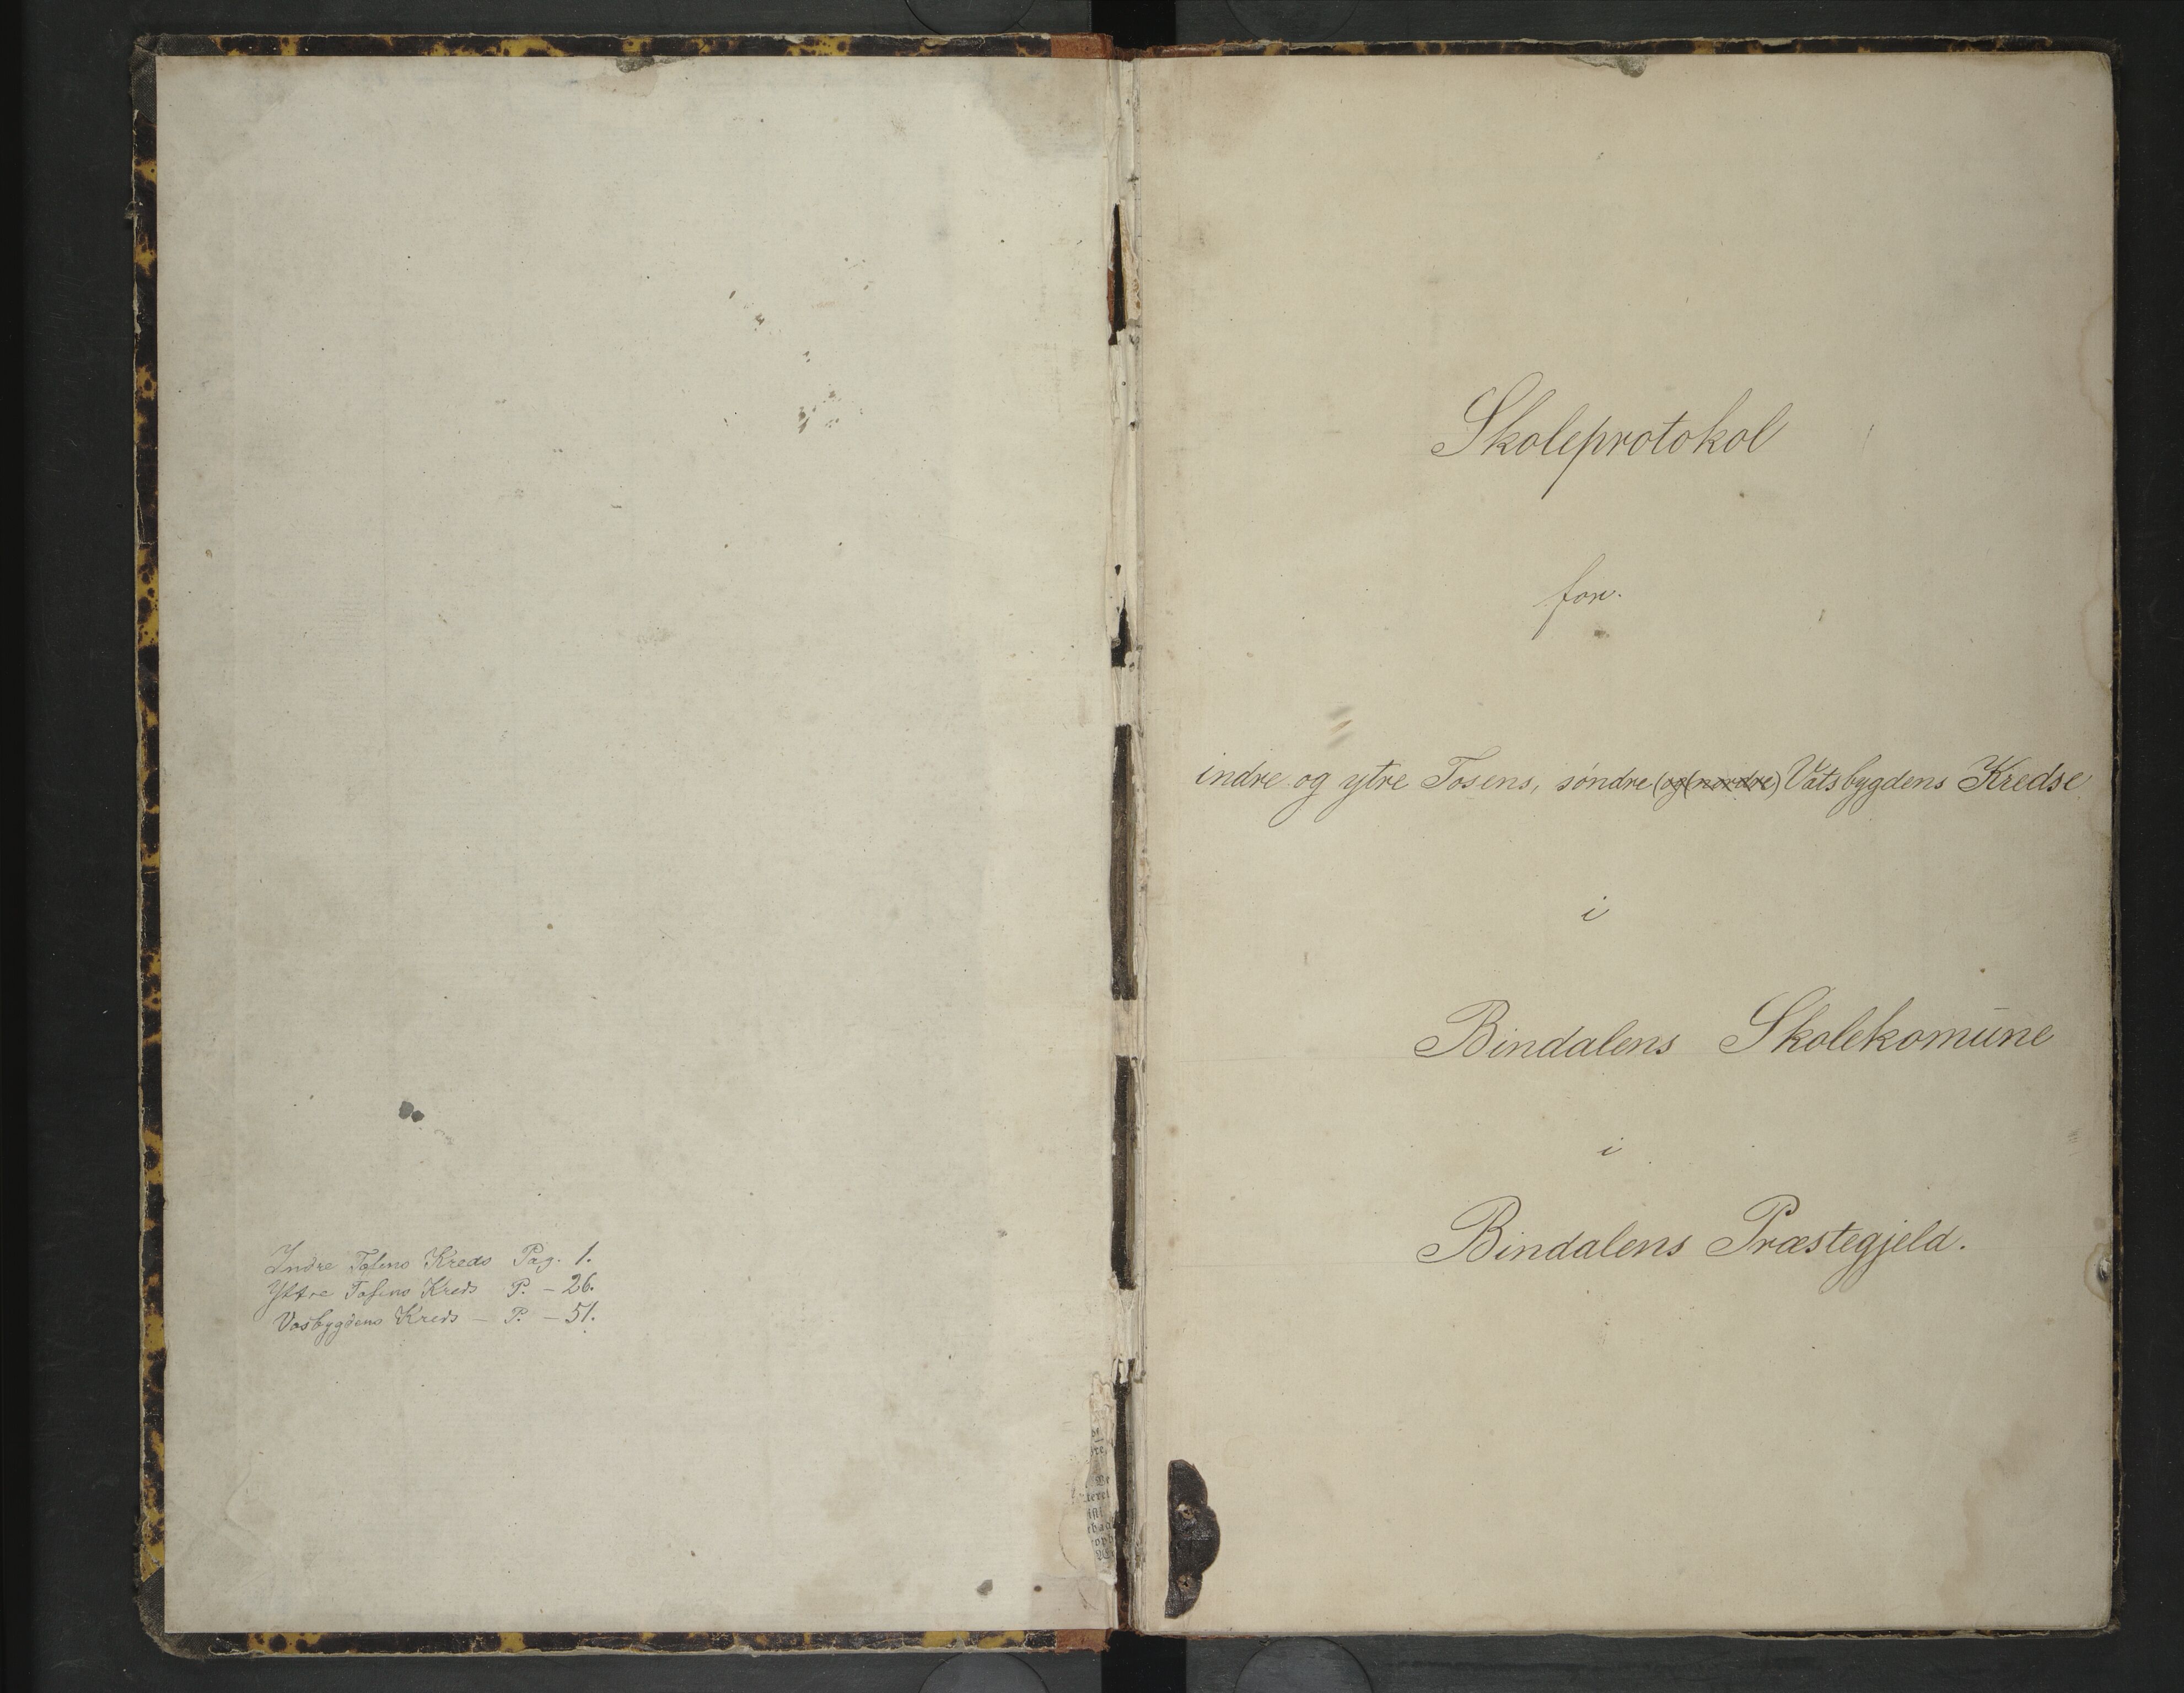 Indre Tosens Kreds Pag. 1.
Yttre Tosens Kreds P. - 26.
Vasbygdens Kreds - P. - 51.
Skoleprotokol
for.
indre og ytre Tosens, söndre (og (nordre) Vatsbygdens Kredse
i
Bindalens Skolekomune
i
Bindalens Præstegjeld.